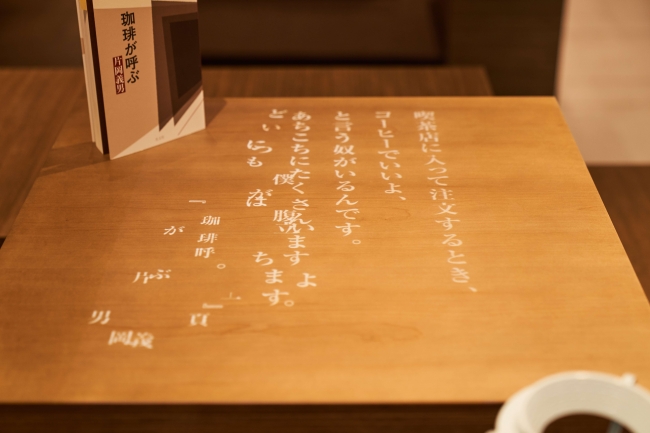 珈琲が呼ぶ
片岡義男
喫茶店に入って注文するとき、
コーヒーでいいよ、
と言う奴がいるんです。
あちこちにたくさんいますよ。
僕
ちます。
『珈琲呼
が
ぶ
』
頁
片
岡義
男